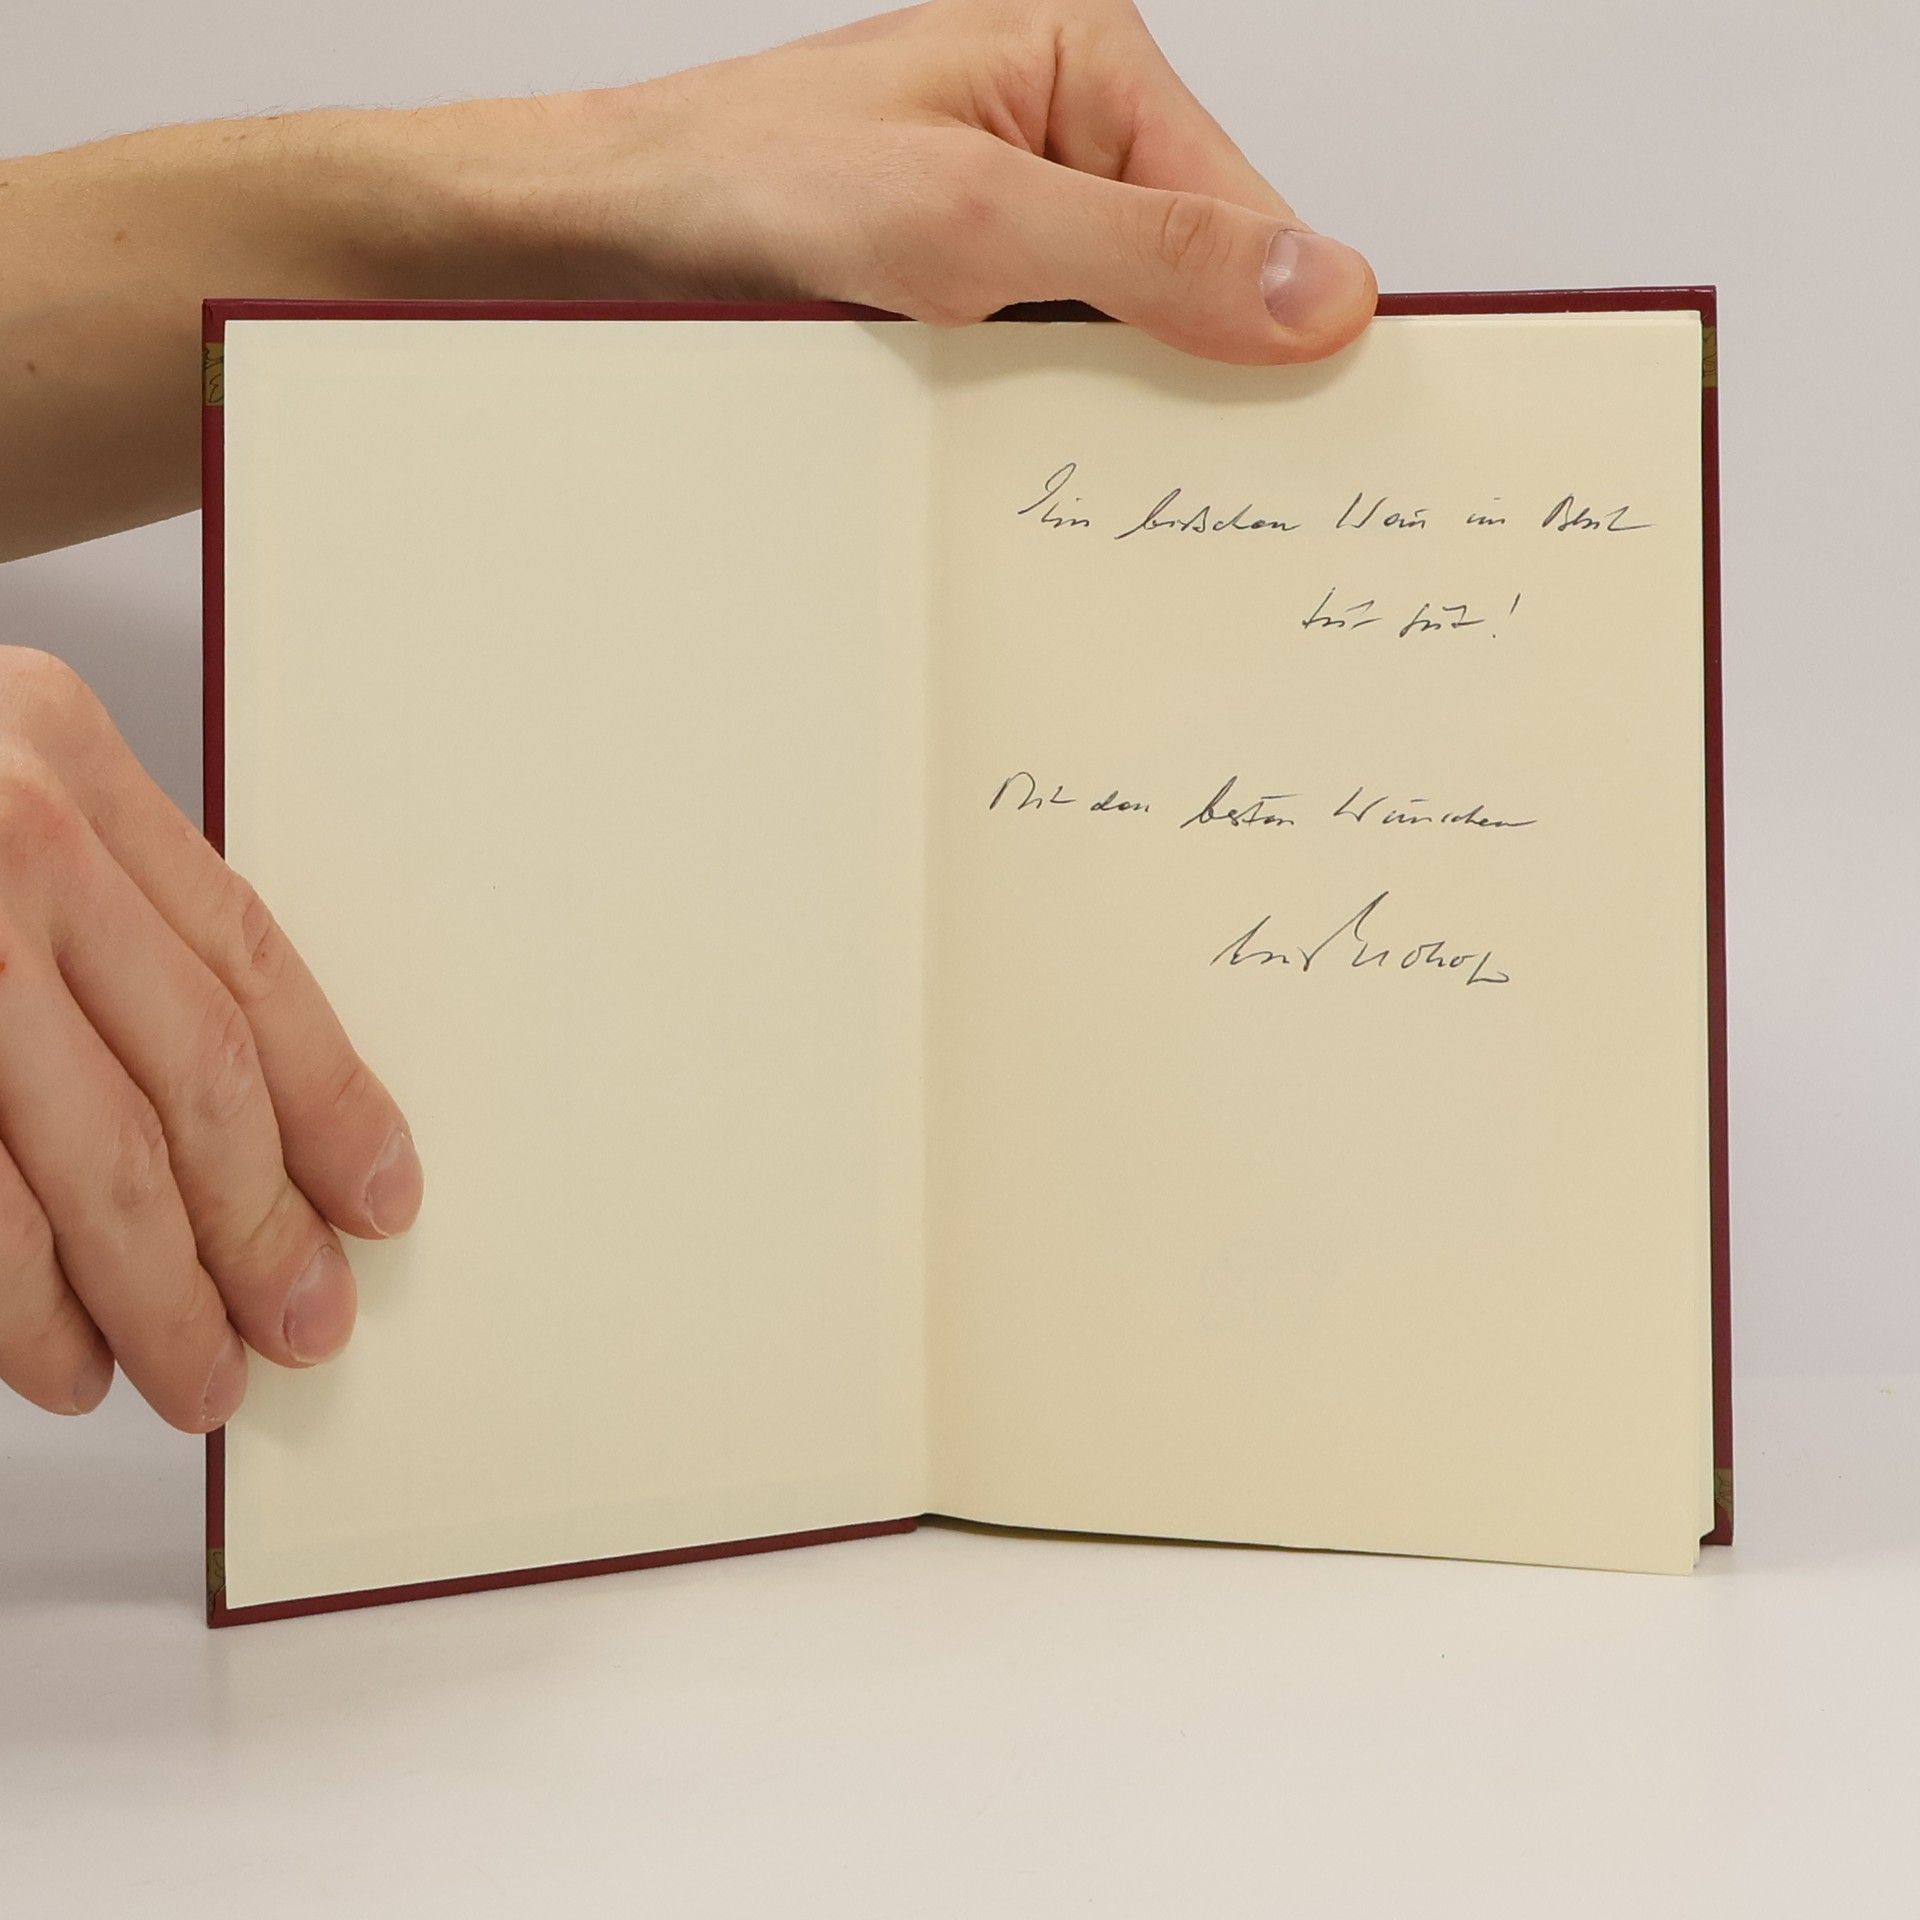 Ein bißchen Wein im Blut
tut gut!
Mit den besten Wünschen